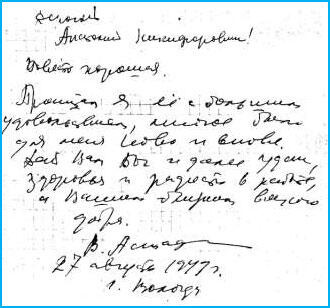 Дорогой
Анатолий Никифорович!
Повесть хорошая.
Прочитал я её с большим
удовольствием, многое было
для меня ново и внове.
Дай Вам Бог и далее удачи,
здоровья и радости в работе,
а Вашим близким всякого
добра.
В. Астаф
27 августа 1977 г.
г. Вологда